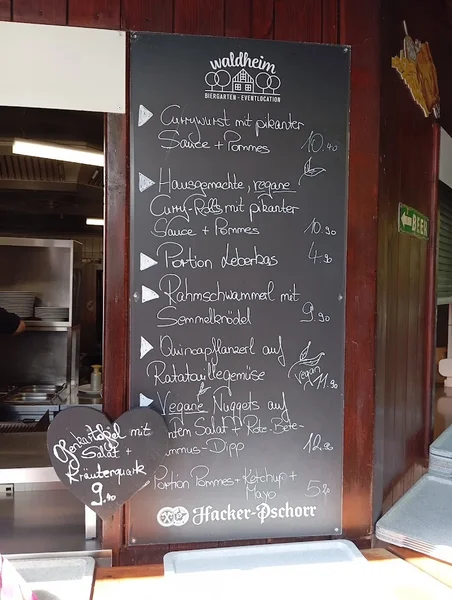 waldheim
BIERGARTEN - EVENTLOCATION
Currywurst mit pikanter
Sauce + Pommes 10.40
Hausgemachte, vegane
Curry-Rolls, mit pikanter
Sauce + Pommes 10.90
Portion Leberkas 4.90
Rahmschwammerl mit
Semmelknödel 9.90
Quinoapflanzerl auf
Ratatouillegemüse
vegan 11.90
Vegane Nuggets auf
Salat + Rote-Bete-
Dipp 12.90
Portion Pommes + Ketchup +
Mayo 5.20
Hacker-Pschorr
Ofenkartoffel mit
Salat +
Kräuterquark
9.40
BEER